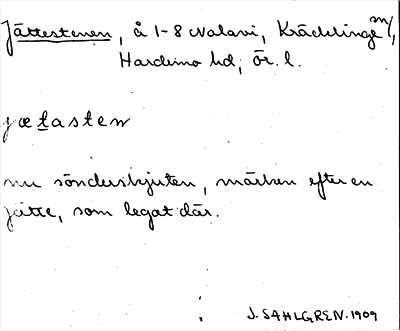 Jättestenen, å 1-8 Nalavi, Kräcklinge m/,
Hardemo hd, Ör. l.
jætasten
nu sönderskjuten, märken efter en
jätte, som legat där.
J. SAHLGREN. 1909